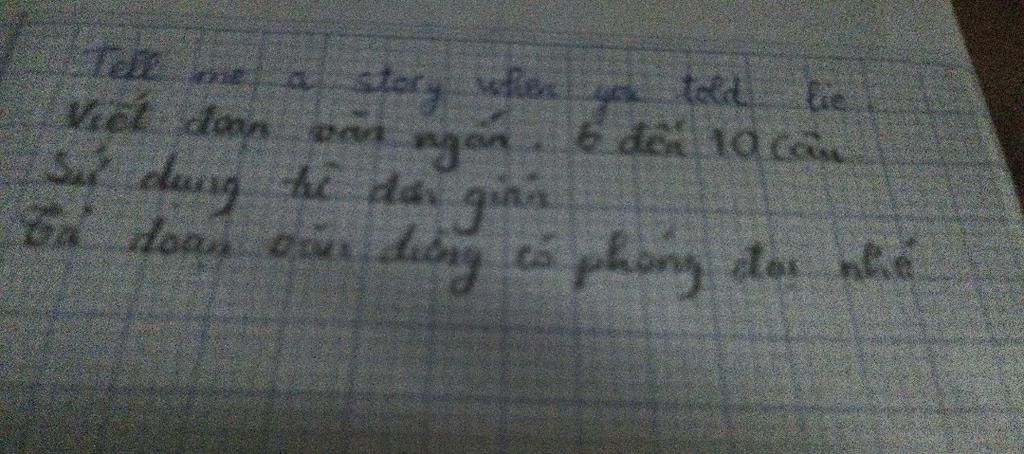 Tell me a story when you told lie.
Viết đoạn văn ngắn. 6 đến 10 câu
Sử dụng từ đơn giản
Tả đoạn văn đừng có phóng đại nhé